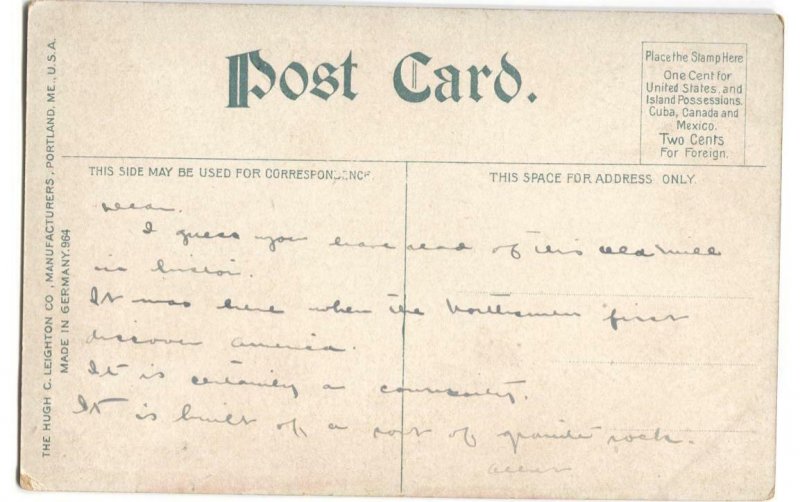 Post Card.
Place the Stamp Here
One Cent for
United States, and
Island Possessions.
Cuba, Canada and
Mexico.
Two Cents
For Foreign.
THIS SIDE MAY BE USED FOR CORRESPONDENCE.
THIS SPACE FOR ADDRESS ONLY.
THE HUGH C. LEIGHTON CO., MANUFACTURERS, PORTLAND, ME., U.S.A.
MADE IN GERMANY. 964
I guess you have read of this old mill
in
It was here when the Northsmen first
discover america.
It is certainly a
It is built of a sort of granite rock.